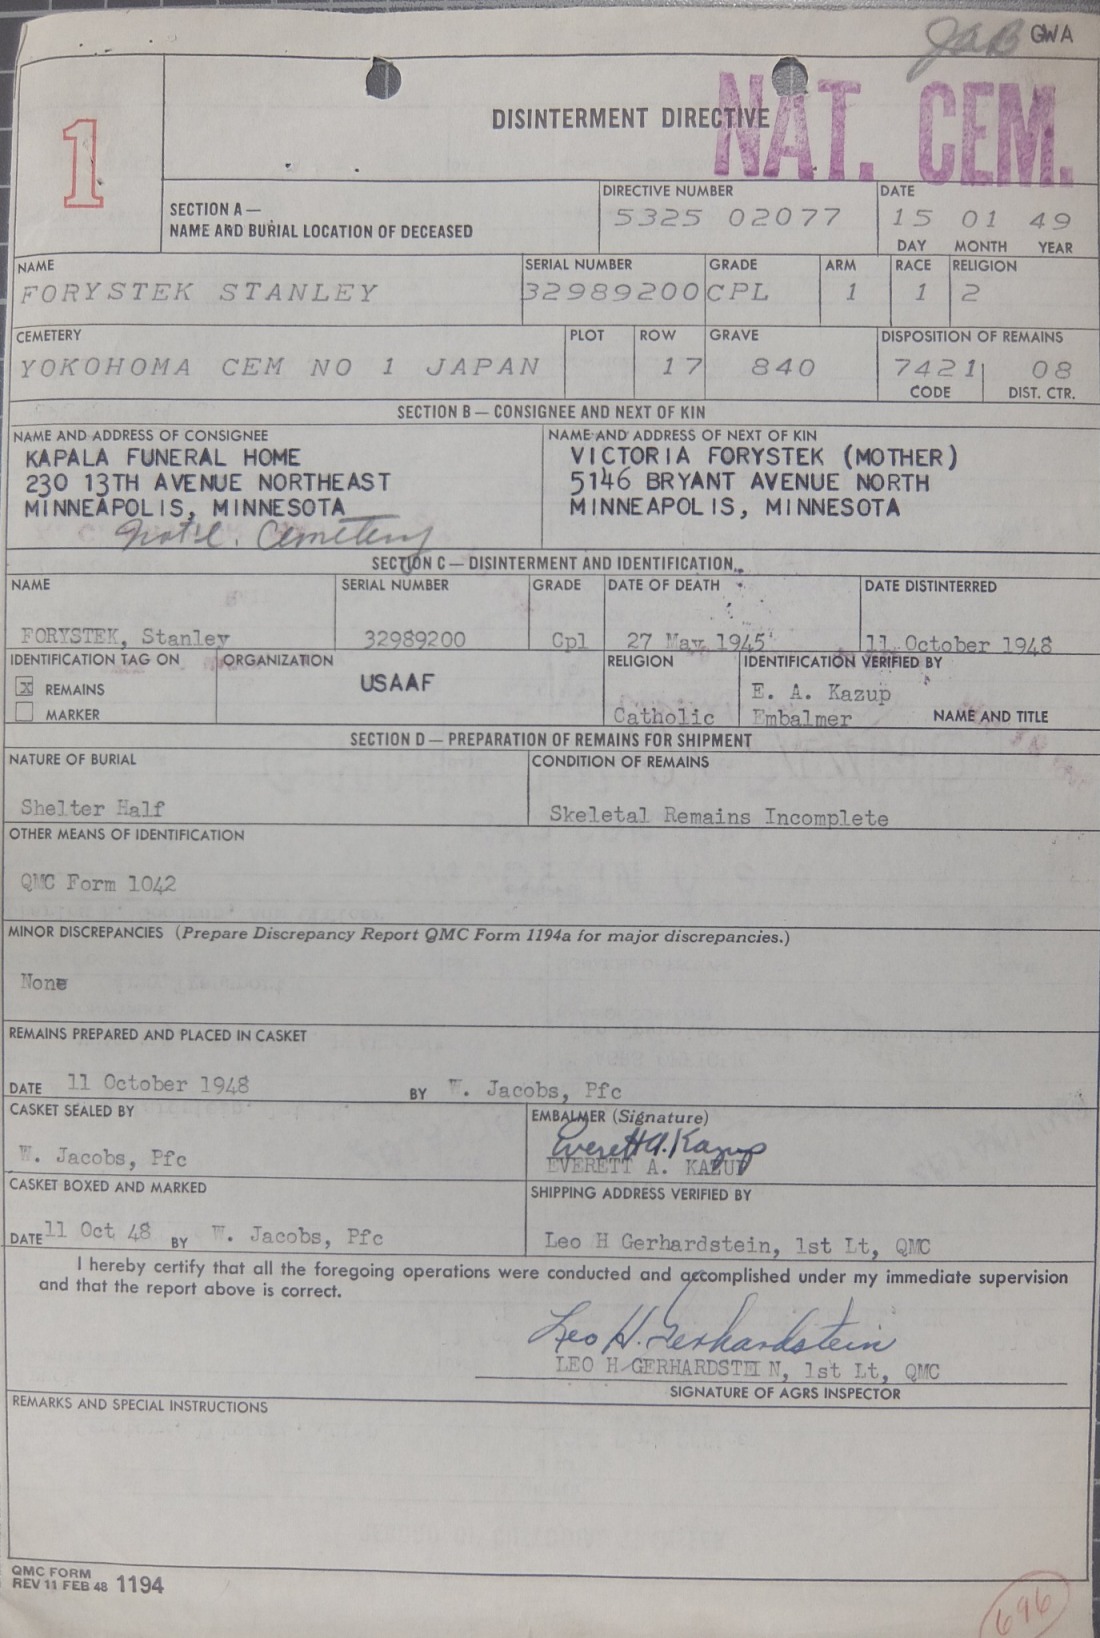 JAB GWA
1
DISINTERMENT DIRECTIVE
NAT. CEM.
SECTION A—
NAME AND BURIAL LOCATION OF DECEASED
DIRECTIVE NUMBER
5325 02077
DATE
15 01 49
DAY MONTH YEAR
NAME
FORYSTEK STANLEY
SERIAL NUMBER
32989200
GRADE
CPL
ARM
1
RACE
1
RELIGION
2
CEMETERY
YOKOHOMA CEM NO 1 JAPAN
PLOT
ROW
17
GRAVE
840
DISPOSITION OF REMAINS
7421 08
CODE DIST. CTR.
SECTION B — CONSIGNEE AND NEXT OF KIN
NAME AND ADDRESS OF CONSIGNEE
KAPALA FUNERAL HOME
230 13TH AVENUE NORTHEAST
MINNEAPOLIS, MINNESOTA
Nat'l. Cemetery
NAME AND ADDRESS OF NEXT OF KIN
VICTORIA FORYSTEK (MOTHER)
5146 BRYANT AVENUE NORTH
MINNEAPOLIS, MINNESOTA
SECTION C — DISINTERMENT AND IDENTIFICATION
NAME
FORYSTEK, Stanley
SERIAL NUMBER
32989200
GRADE
Cpl
DATE OF DEATH
27 May 1945
DATE DISTINTERRED
11 October 1948
IDENTIFICATION TAG ON
x REMAINS
MARKER
ORGANIZATION
USAAF
RELIGION
Catholic
IDENTIFICATION VERIFIED BY
E. A. Kazup
Embalmer NAME AND TITLE
SECTION D — PREPARATION OF REMAINS FOR SHIPMENT
NATURE OF BURIAL
Shelter Half
CONDITION OF REMAINS
Skeletal Remains Incomplete
OTHER MEANS OF IDENTIFICATION
QMC Form 1042
MINOR DISCREPANCIES (Prepare Discrepancy Report QMC Form 1194a for major discrepancies.)
None
REMAINS PREPARED AND PLACED IN CASKET
DATE 11 October 1948 BY W. Jacobs, Pfc
CASKET SEALED BY
W. Jacobs, Pfc
EMBALMER (Signature)
Everett A. Kazup
EVERETT A. KAZUP
CASKET BOXED AND MARKED
DATE 11 Oct 48 BY W. Jacobs, Pfc
SHIPPING ADDRESS VERIFIED BY
Leo H Gerhardstein, 1st Lt, QMC
I hereby certify that all the foregoing operations were conducted and accomplished under my immediate supervision
and that the report above is correct.
Leo H. Gerhardstein
LEO H GERHARDSTEIN, 1st Lt, QMC
SIGNATURE OF AGRS INSPECTOR
REMARKS AND SPECIAL INSTRUCTIONS
QMC FORM
REV 11 FEB 48 1194
696